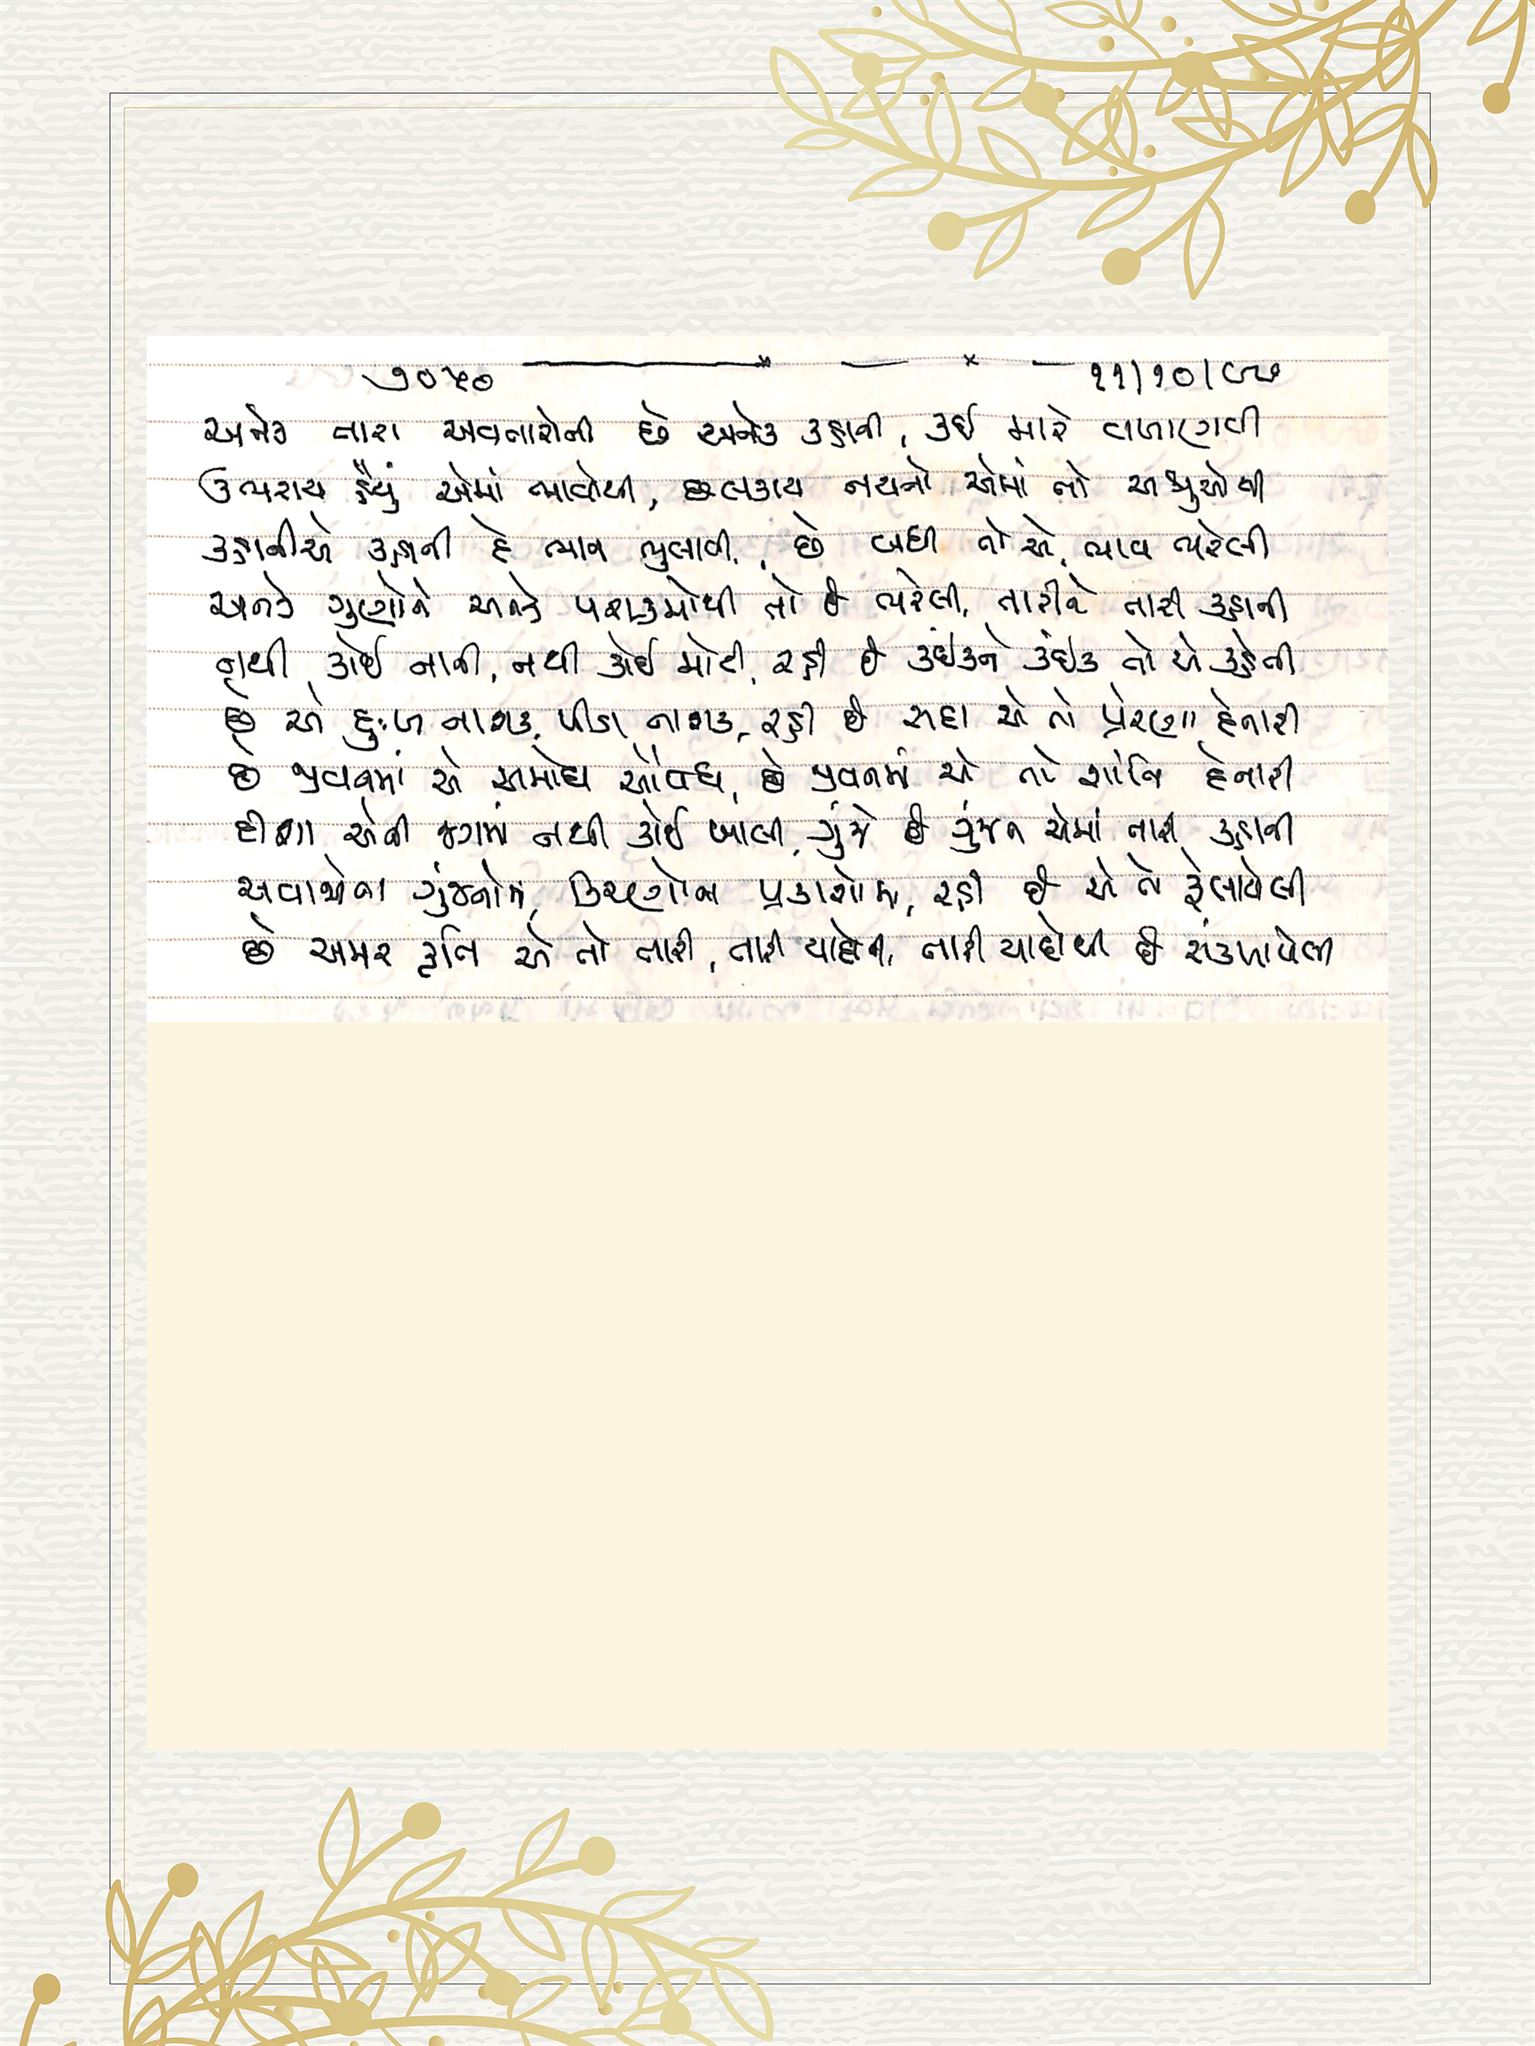 ૭૦૫૦ ૧૧/૧૦/૯૭
અનેક તારા અવતારોની છે અનેક કહાની, કઈ મારે વખાણવી
ઉભરાય હૈયું એમાં ભાવોથી, છલકાય નયનો એમાં તો અશ્રુઓથી
કહાનીએ કહાની દે ભાન ભુલાવી, છે બધી તો એ, ભાવ ભરેલી
અનેક ગુણોને અનેક પરાક્રમોથી તો છે ભરેલી, તારીને તારી કહાની
નથી કોઈ નાની, નથી કોઈ મોટી, રહી છે કંઈકને કંઈક તો એ કહેતી
છે એ દુઃખ નાશક, પીડા નાશક, રહી છે સદા એ તો પ્રેરણા દેનારી
છે જીવનમાં એ અમોઘ ઔષધ, છે જીવનમાં એ તો શાંતિ દેનારી
દીશા એવી જગમાં નથી કોઈ ખાલી, ગુંજે છે ગુંજન એમાં તારી કહાની
અવાજોના ગુંજનોમાં, કિરણોના પ્રકાશોમાં, રહી છે એ તો ફેલાયેલી
છે અમર કૃતિ એ તો તારી, તારી યાદોની, તારી યાદોથી છે સંકળાયેલી